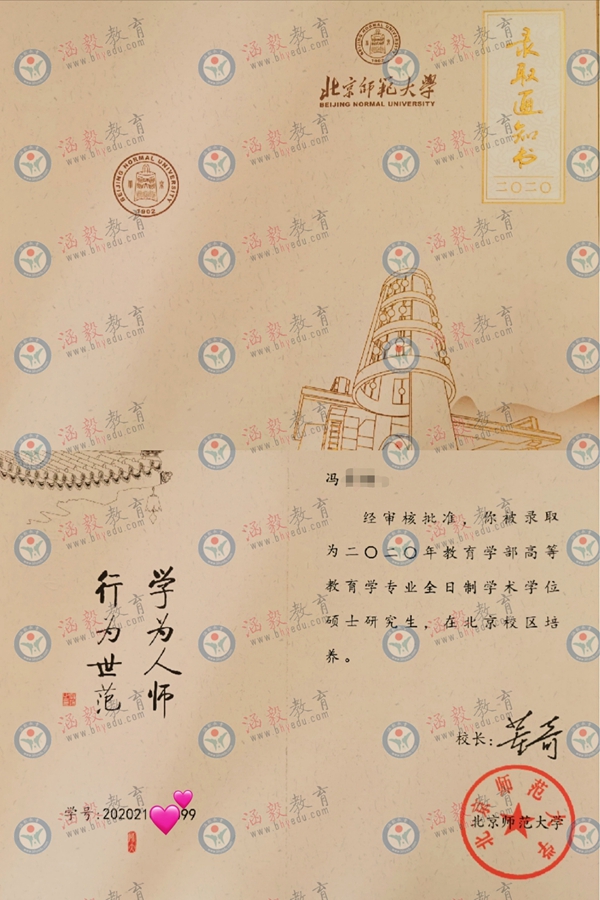 北京师范大学
BEIJING NORMAL UNIVERSITY
录取通知书
二〇二〇
BEIJING NORMAL UNIVERSITY
1902
冯
经审核批准，你被录取
为二〇二〇年教育学部高等
教育学专业全日制学术学位
硕士研究生，在北京校区培
养。
学为人师
行为世范
校长：董奇
学号:202021 99
北京师范大学
北京师范大学
涵毅教育
www.bhyedu.com